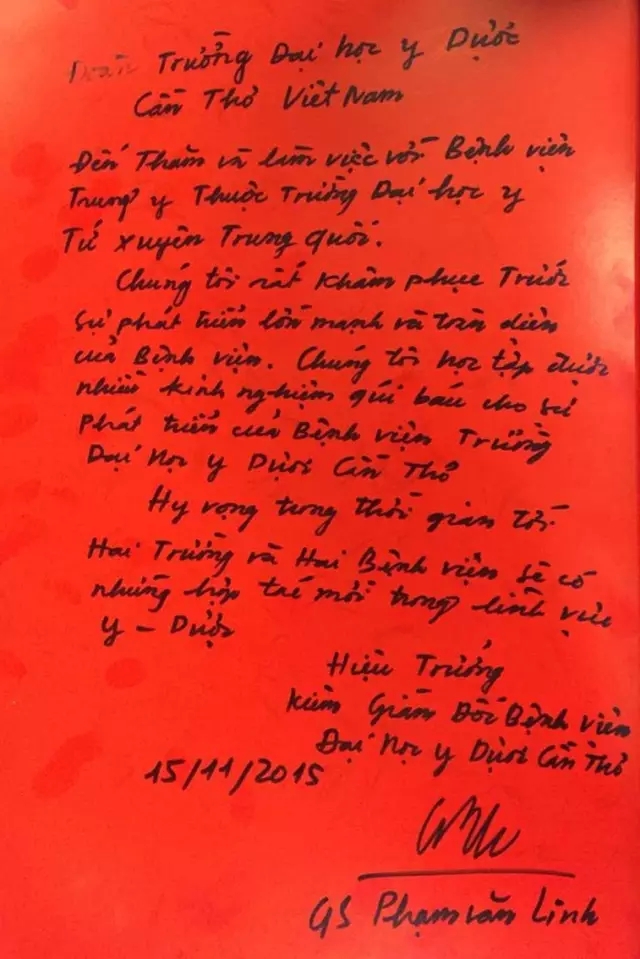 Đoàn Trường Đại học y Dược
Cần Thơ Việt Nam
Đến Thăm và làm việc với Bệnh viện
Trung y Thuộc Trường Đại học y
Tứ xuyên Trung quốc.
Chúng tôi rất Khâm phục Trước
sự phát triển lớn mạnh và toàn diện
của Bệnh viện. Chúng tôi học tập được
nhiều kinh nghiệm quí báu cho sự
phát triển của Bệnh viện Trường
Đại học y Dược Cần Thơ
Hy vọng trong thời gian tới
Hai Trường và Hai Bệnh viện sẽ có
những hợp tác mới trong lĩnh vực
y - Dược
Hiệu Trưởng
kiêm Giám Đốc Bệnh viện
Đại học y Dược Cần Thơ
15/11/2015
GS Phạm văn Lình